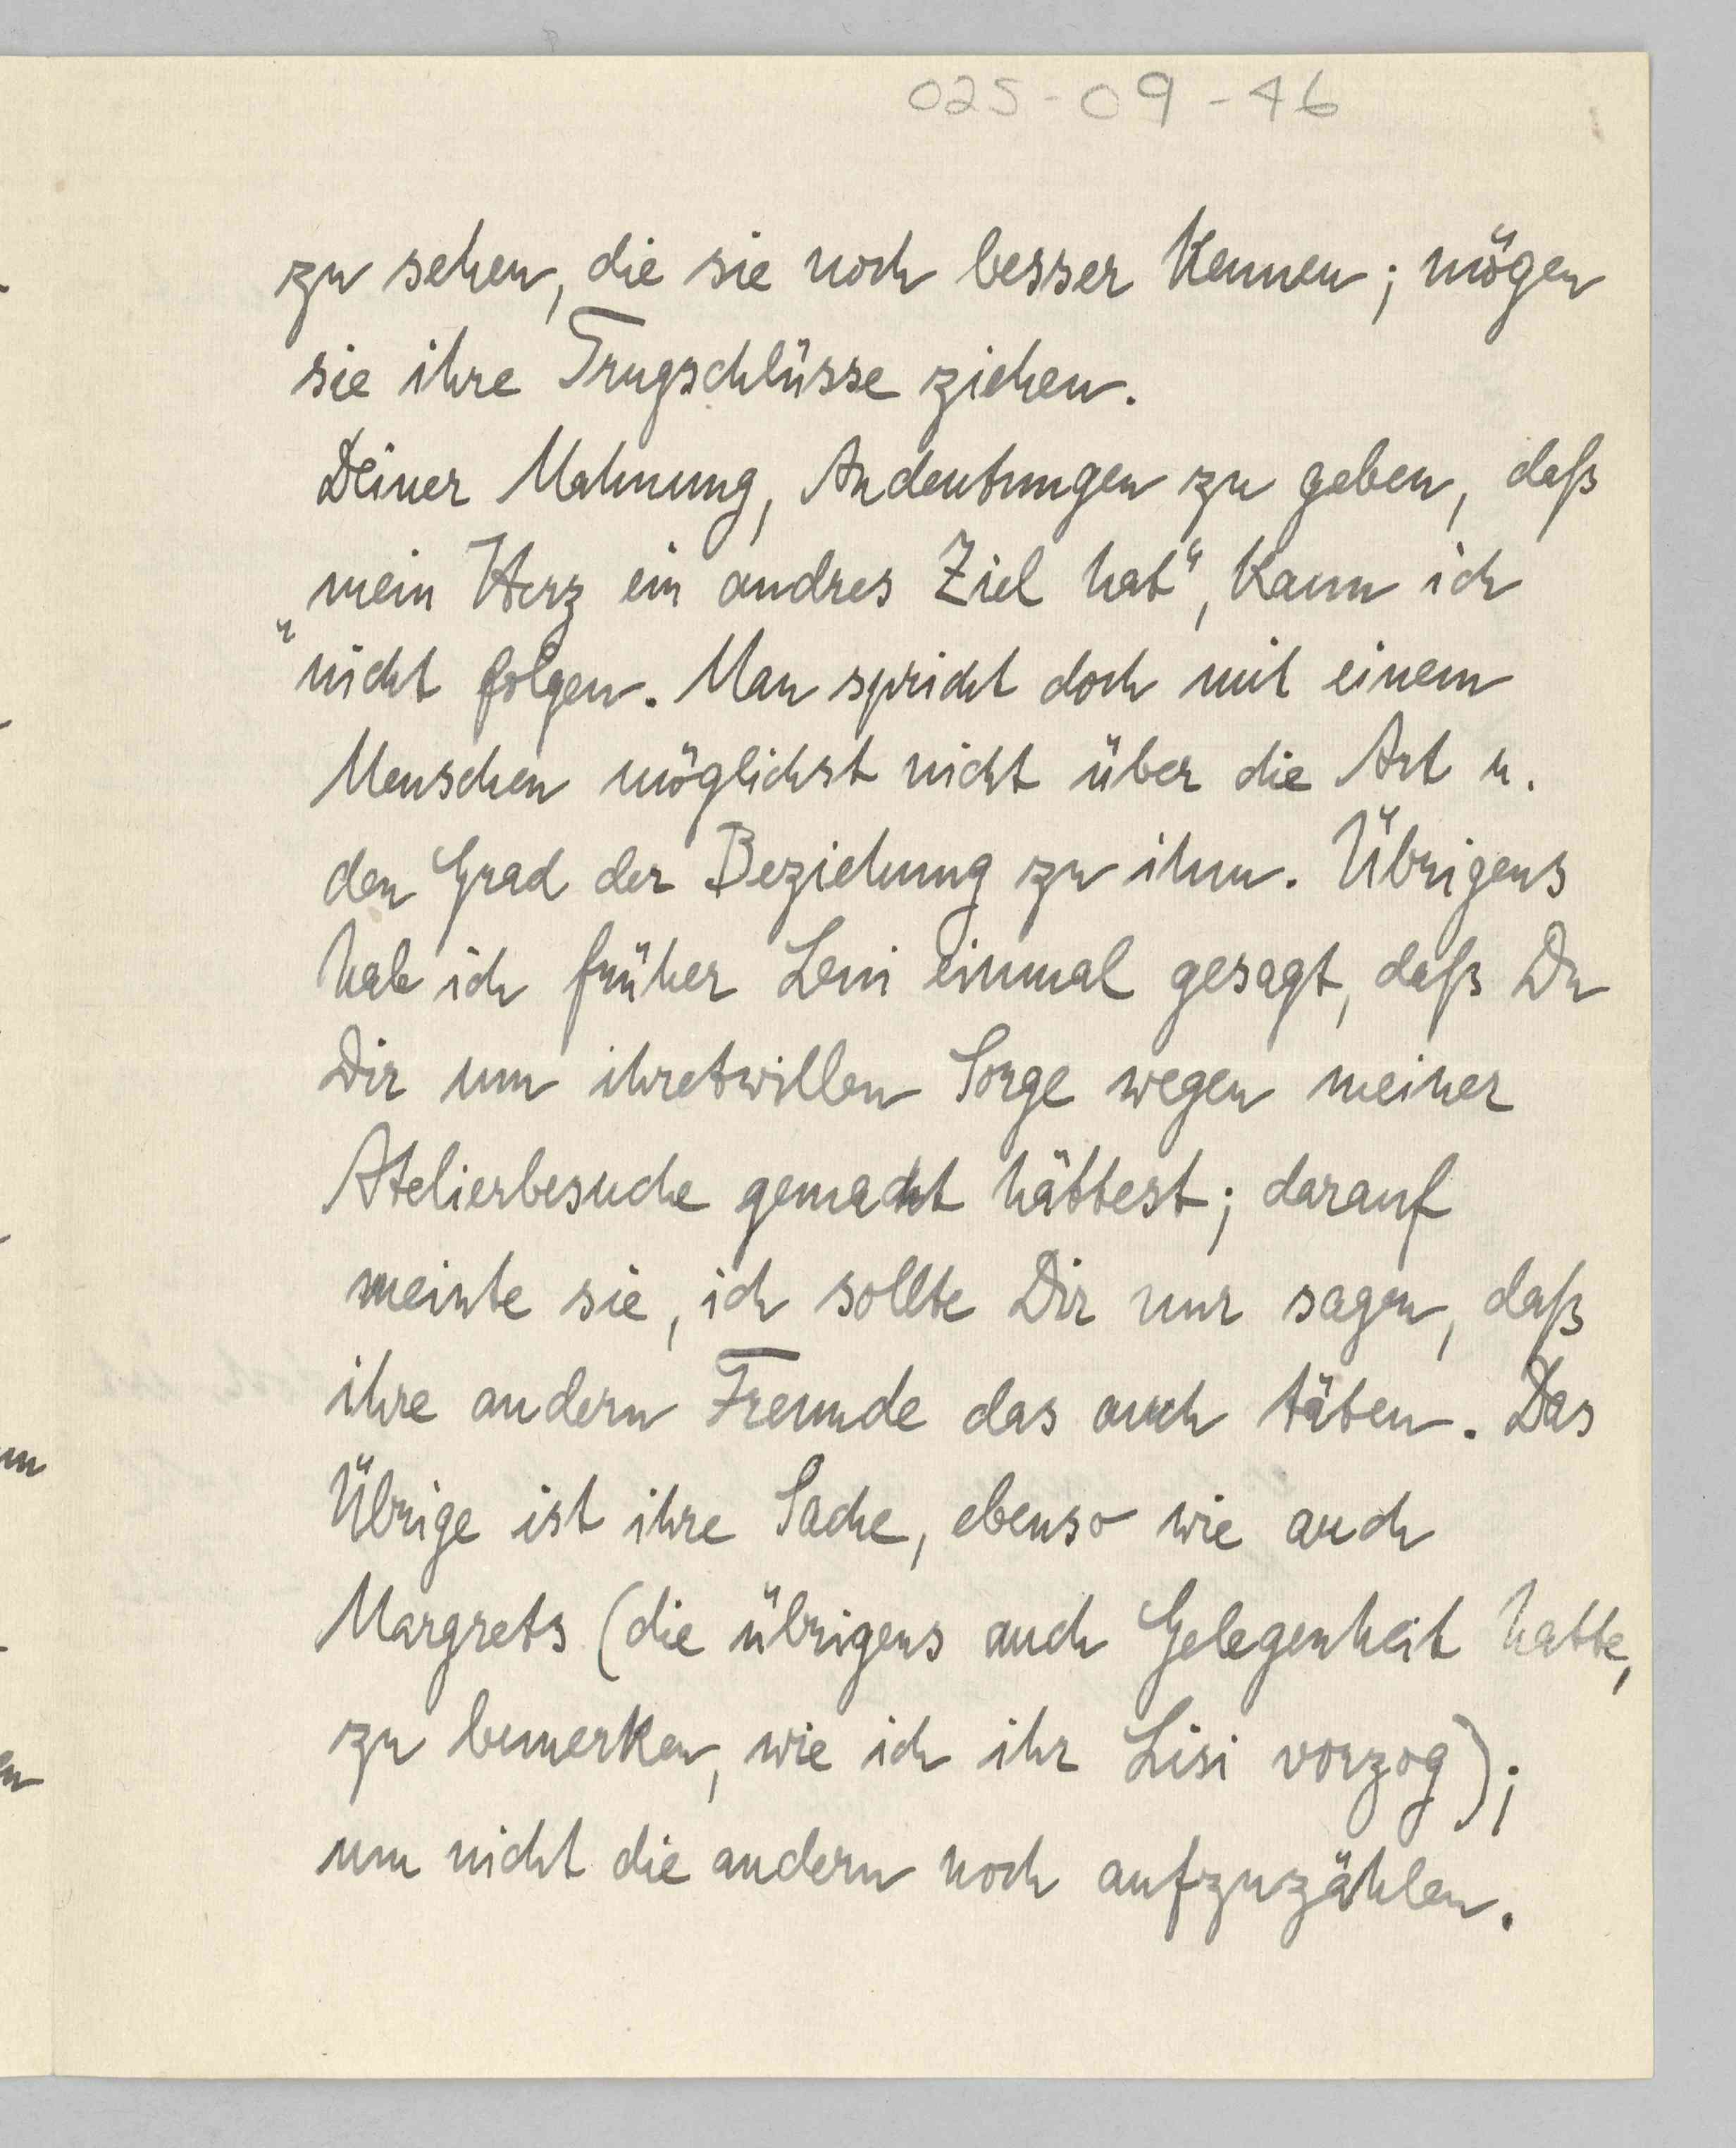 025-09-46
zu sehen, die sie noch besser kennen; mögen
sie ihre Trugschlüsse ziehen.
Deiner Mahnung, Andeutungen zu geben, daß
„mein Herz ein andres Ziel hat“, kann ich
nicht folgen. Man spricht doch mit einem
Menschen möglichst nicht über die Art u.
den Grad der Beziehung zu ihm. Übrigens
hab ich früher Leni einmal gesagt, daß Du
Dir um ihretwillen Sorge wegen meiner
Atelierbesuche gemacht hättest; darauf
meinte sie, ich sollte Dir nur sagen, daß
ihre andern Freunde das auch täten. Das
Übrige ist ihre Sache, ebenso wie auch
Margrets (die übrigens auch Gelegenheit hatte,
zu bemerken, wie ich ihr Lisi vorzog);
um nicht die andern noch aufzuzählen.